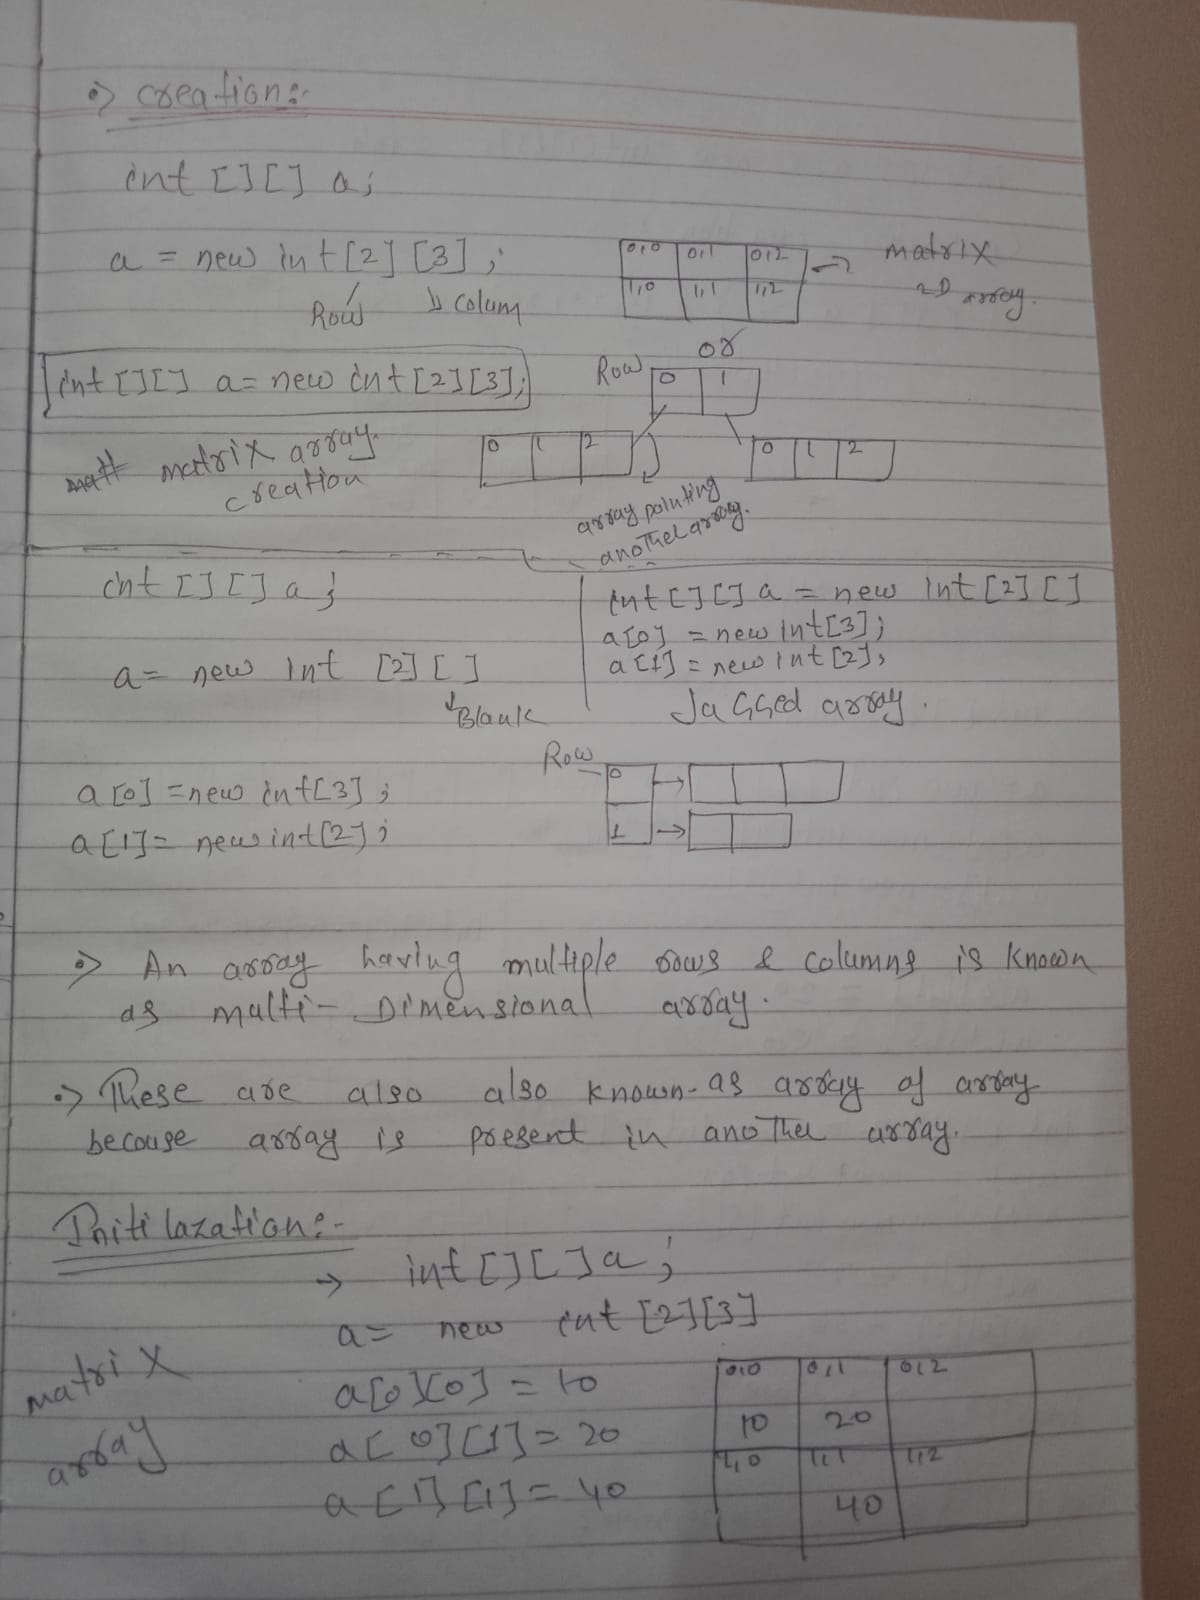 •> creation:-
int [][] a;
a = new int [2] [3];
Row
colum
0,0 0,1 0,2
1,0 1,1 1,2
matrix
2D array.
or
int [][] a = new int [2][3];
matrix array
creation
Row
0 1
0 1 2
0 1 2
array pointing
another array.
int [][] a;
a = new int [2] [ ]
Blank
a[0] = new int[3];
a[1] = new int[2];
int [][] a = new int [2] []
a[0] = new int[3];
a[1] = new int[2];
Jagged array.
Row
0
1
•> An array having multiple rows & columns is known
as multi-Dimensional array.
•> These are also also known-as array of array
becouse array is present in another array.
Initilazation:-
→ int [][] a;
a = new int [2][3]
a[0][0] = 10
a[0][1] = 20
a[1][1] = 40
matrix
array
0,0 0,1 0,2
10 20
1,0 1,1 1,2
40